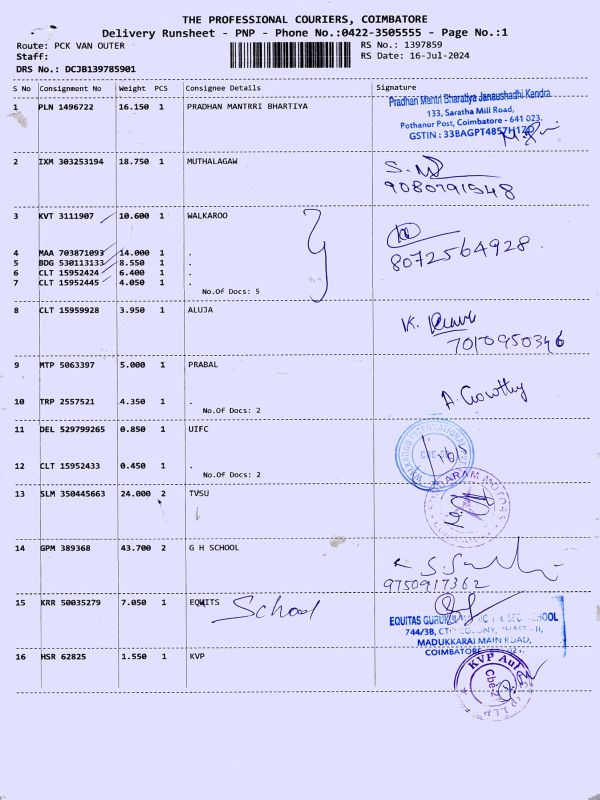 THE PROFESSIONAL COURIERS, COIMBATORE
Delivery Runsheet - PNP - Phone No.:0422-3505555 - Page No.:1
Route: PCK VAN OUTER
RS No.: 1397859
Staff:
RS Date: 16-Jul-2024
DRS No.: DCJB139785901
S No Consignment No Weight PCS Consignee Details Signature
1 PLN 1496722 16.150 1 PRADHAN MANTRRI BHARTIYA
Pradhan Mantri Bharatiya Janaushadhi Kendra
133, Saratha Mill Road,
Pothanur Post, Coimbatore - 641 023.
GSTIN : 33BAGPT4857H1
2 IXM 303253194 18.750 1 MUTHALAGAW
9080791548
3 KVT 3111907 10.600 1 WALKAROO
8072564928
4 MAA 703871093 14.000 1 .
5 BDG 530113133 8.550 1 .
6 CLT 15952424 6.400 1 .
7 CLT 15952445 4.050 1 .
No.Of Docs: 5
8 CLT 15959928 3.950 1 ALUJA
K. Kumar
7010950346
9 MTP 5063397 5.000 1 PRABAL
10 TRP 2557521 4.350 1 .
A. Gowthy
No.Of Docs: 2
11 DEL 529799265 0.850 1 UIFC
12 CLT 15952433 0.450 1 .
No.Of Docs: 2
13 SLM 350445663 24.000 2 TVSU
SUNDARAM MOTORS
14 GPM 389368 43.700 2 G H SCHOOL
9750917362
15 KRR 50035279 7.050 1 EQUITS School
EQUITAS SCHOOL
744/3B, COLONY,
MADUKKARAI MAIN ROAD,
COIMBATORE
16 HSR 62825 1.550 1 KVP
KVP
Cbe-2